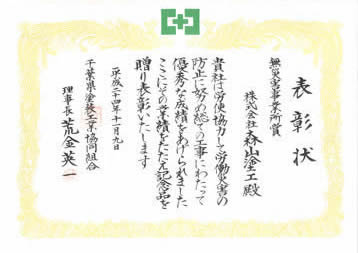 表彰状
無災害事業所賞
株式会社 森山塗工殿
貴社は労使協力して労働災害の
防止に努め総ての工事にわたって
優秀な成績をあげられました
ここにその業績をたたえ記念品を
贈り表彰いたします
平成二十四年十一月九日
千葉県塗装工業協同組合
理事長 荒金英一